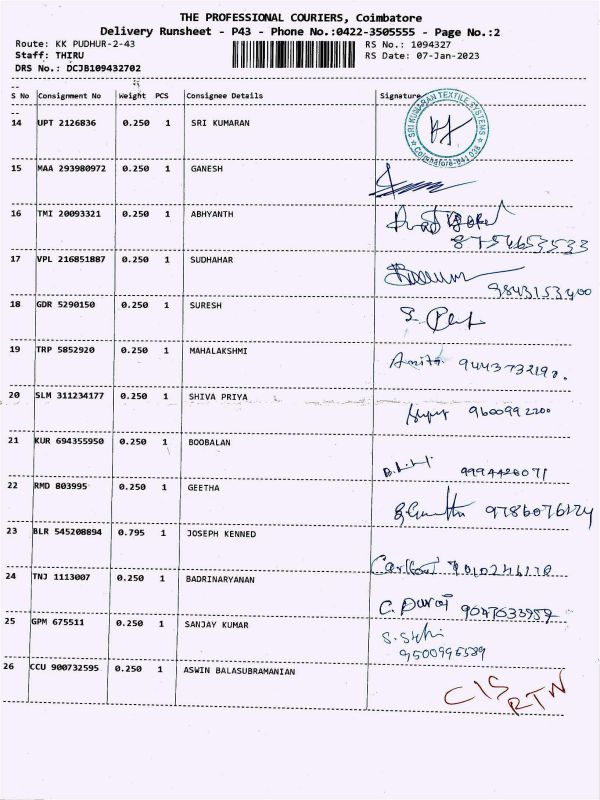 THE PROFESSIONAL COURIERS, Coimbatore
Delivery Runsheet - P43 - Phone No.:0422-3505555 - Page No.:2
Route: KK PUDHUR-2-43 RS No.: 1094327
Staff: THIRU RS Date: 07-Jan-2023
DRS No.: DCJB109432702
S No Consignment No Weight PCS Consignee Details Signature
14 UPT 2126836 0.250 1 SRI KUMARAN
SRI KUMARAN TEXTILE SYSTEMS
15 MAA 293980972 0.250 1 GANESH
16 TMI 20093321 0.250 1 ABHYANTH
8754653533
17 VPL 216851887 0.250 1 SUDHAHAR
9843153400
18 GDR 5290150 0.250 1 SURESH
19 TRP 5852920 0.250 1 MAHALAKSHMI Amita
20 SLM 311234177 0.250 1 SHIVA PRIYA 9600992200
21 KUR 694355950 0.250 1 BOOBALAN 9994426071
22 RMD 803995 0.250 1 GEETHA
23 BLR 545208894 0.795 1 JOSEPH KENNED
24 TNJ 1113007 0.250 1 BADRINARYANAN C. Durai
25 GPM 675511 0.250 1 SANJAY KUMAR
9500996589
26 CCU 900732595 0.250 1 ASWIN BALASUBRAMANIAN
C/S
RTN